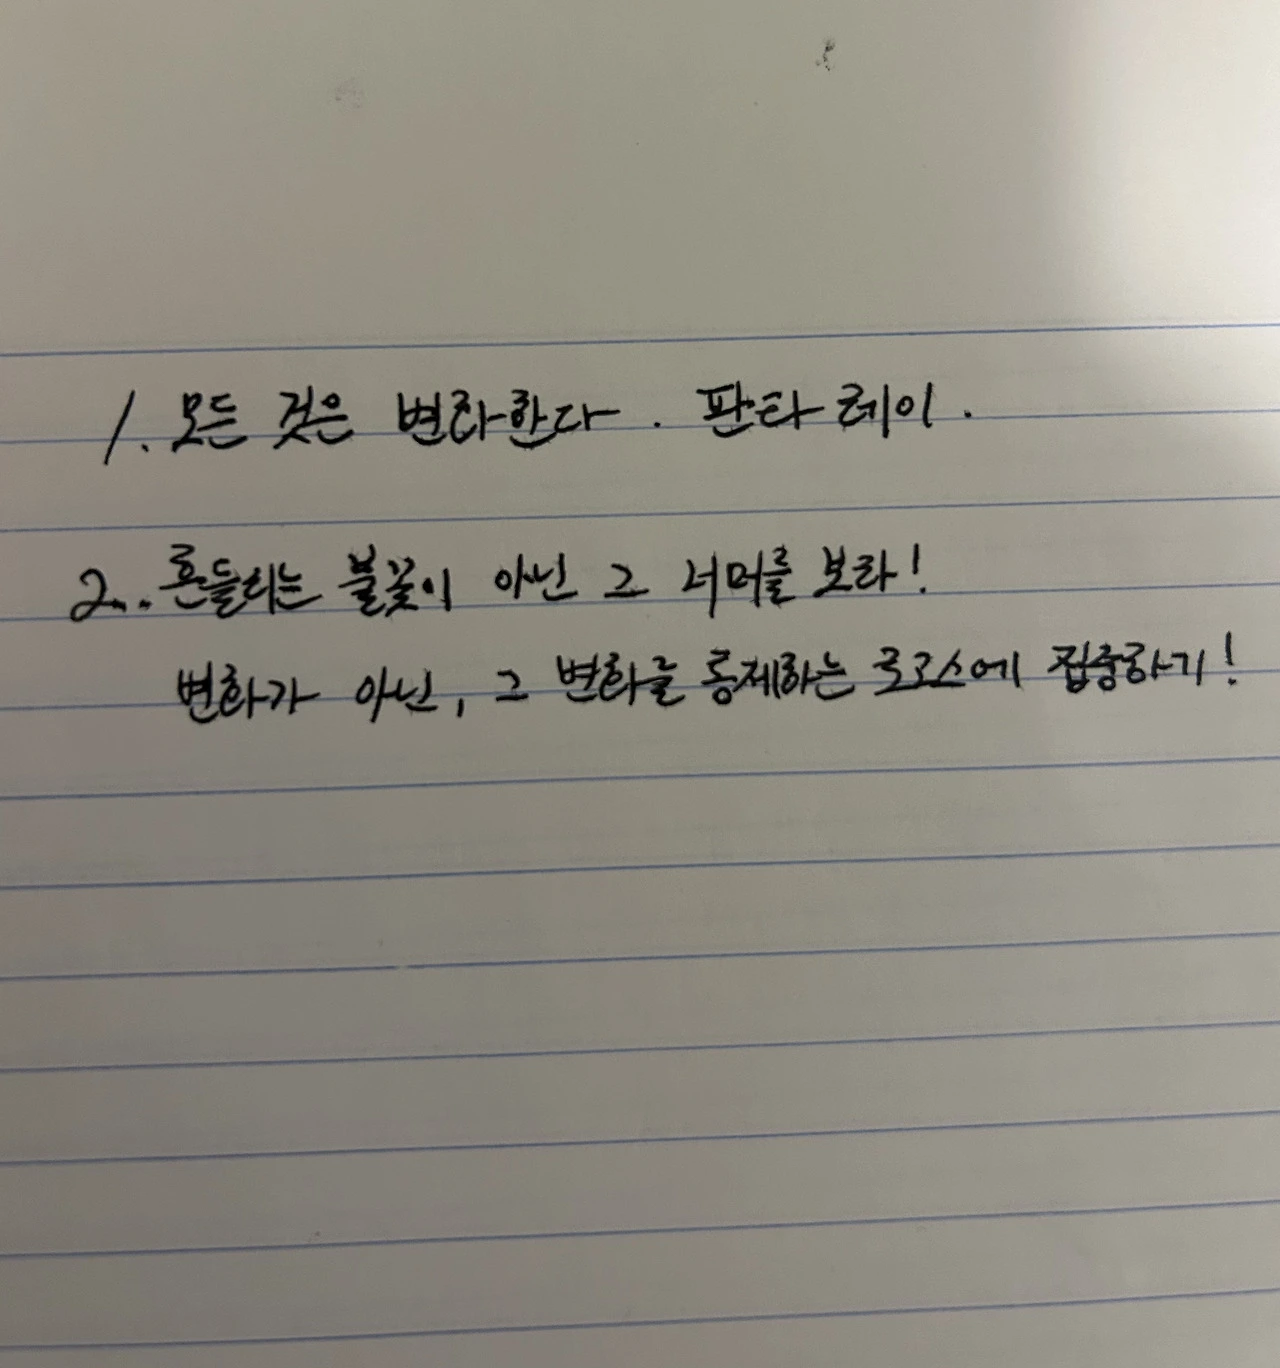 1. 모든 것은 변화한다. 판타 레이.
2. 흔들리는 불꽃이 아닌 그 너머를 보라!
변화가 아닌, 그 변화를 통제하는 로고스에 집중하기!